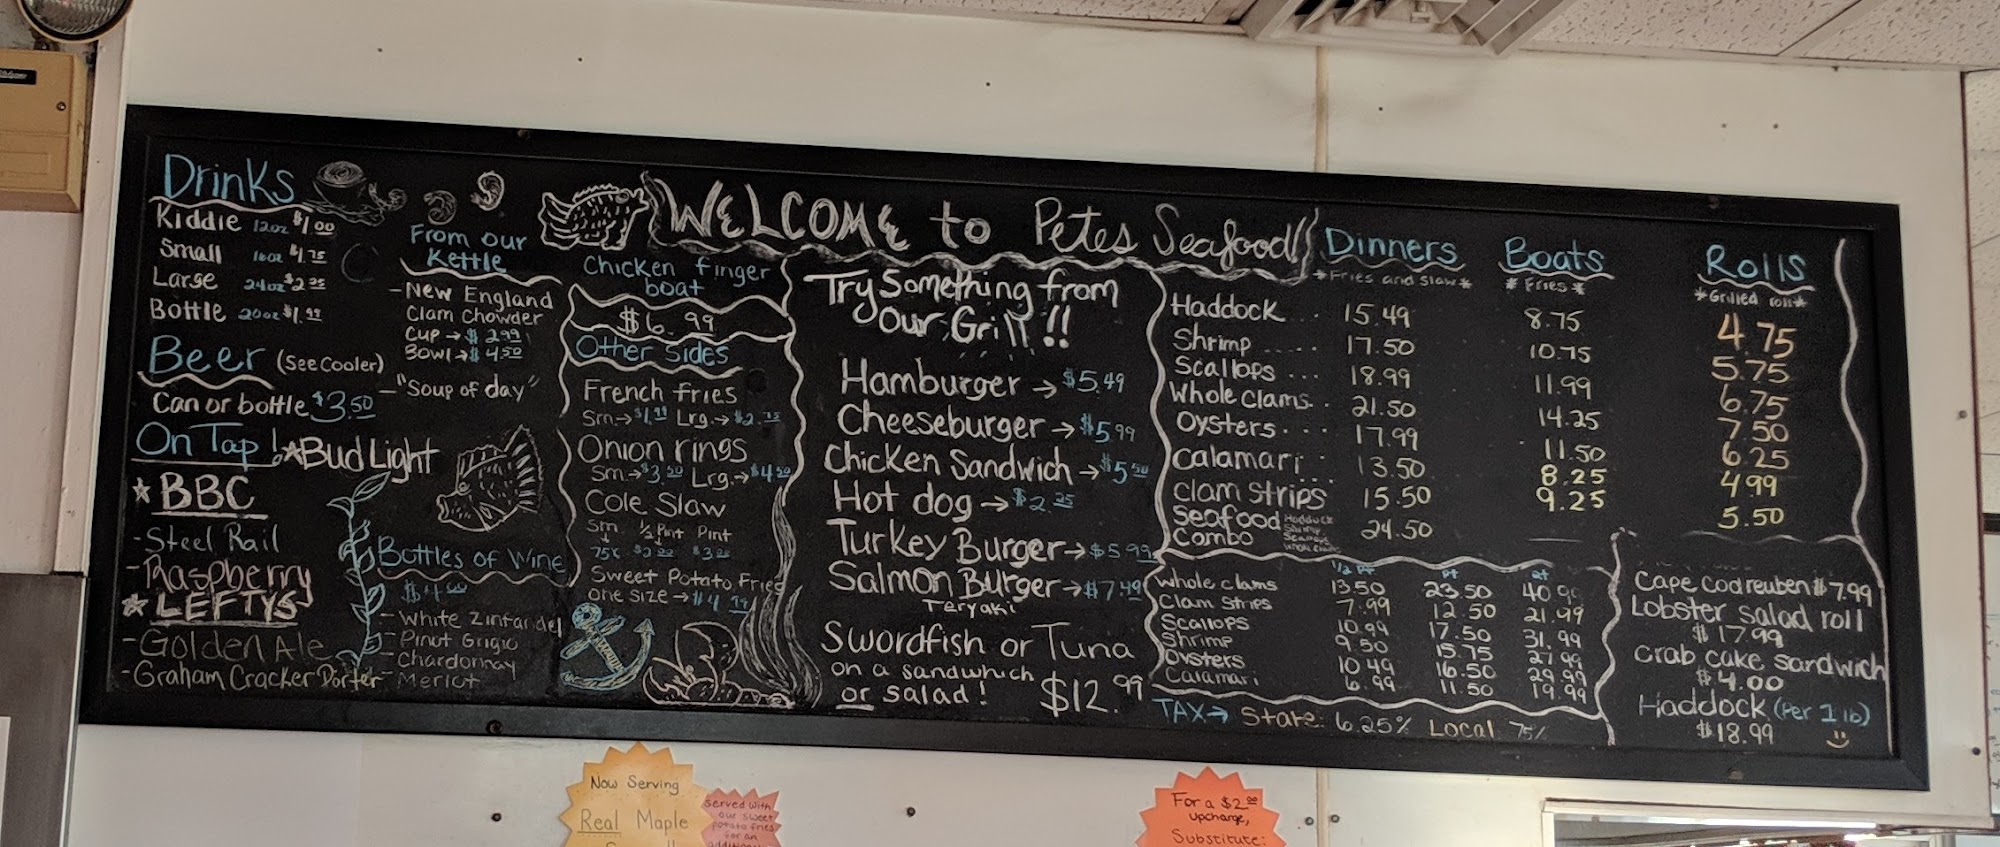 WELCOME to Petes Seafood
Drinks
Kiddie 12oz $1.00
Small 16oz $1.75
Large 24oz $2.25
Bottle 20oz $1.99
Beer (See Cooler)
Can or bottle $3.50
On Tap! *Bud Light
* BBC
- Steel Rail
- Raspberry
* LEFTYS
- Golden Ale
- Graham Cracker Porter
From our
Kettle
- New England
Clam Chowder
Cup → $2.99
Bowl → $4.50
- "Soup of day"
Bottles of Wine
- White Zinfandel
- Pinot Grigio
- Chardonnay
- Merlot
Chicken finger
boat
$6.99
Other Sides
French fries
Sm → $1.99 Lrg. → $2.75
Onion rings
Sm → $3.50 Lrg. → $4.50
Cole Slaw
Sm ½ Pint Pint
75¢ $2.00 $3.00
Sweet Potato Fries
one size → $4.99
Try Something from
our Grill!!
Hamburger → $5.49
Cheeseburger → $5.99
Chicken Sandwich → $5.50
Hot dog → $2.25
Turkey Burger → $5.99
Salmon Burger → $7.49
Teryaki
Swordfish or Tuna
on a sandwhich
or salad! $12.99
Dinners Boats Rolls
*Fries and slaw* *Fries* *Grilled roll*
Haddock . . . 15.49 8.75 4.75
Shrimp ..... 17.50 10.75 5.75
Scallops ... 18.99 11.99 6.75
Whole Clams. . 21.50 14.25 7.50
Oysters. . . 17.99 11.50 6.25
Calamari . . 13.50 8.25 4.99
Clam Strips 15.50 9.25 5.50
Seafood Haddock
Combo 24.50
½ pt pt qt
Whole clams 13.50 23.50 40.99
Clam Strips 7.99 12.50 21.99
Scallops 10.99 17.50 31.99
Shrimp 9.50 15.75 27.99
Oysters 10.49 16.50 29.99
Calamari 6.99 11.50 19.99
TAX → State: 6.25% Local .75%
Cape Cod reuben $7.99
Lobster salad roll
$17.99
Crab cake sandwich
$4.00
Haddock (Per 1 lb)
$18.99
Now Serving
Real Maple
Served with
our sweet
potato fries
for an
For a $2.00
upcharge,
Substitute: